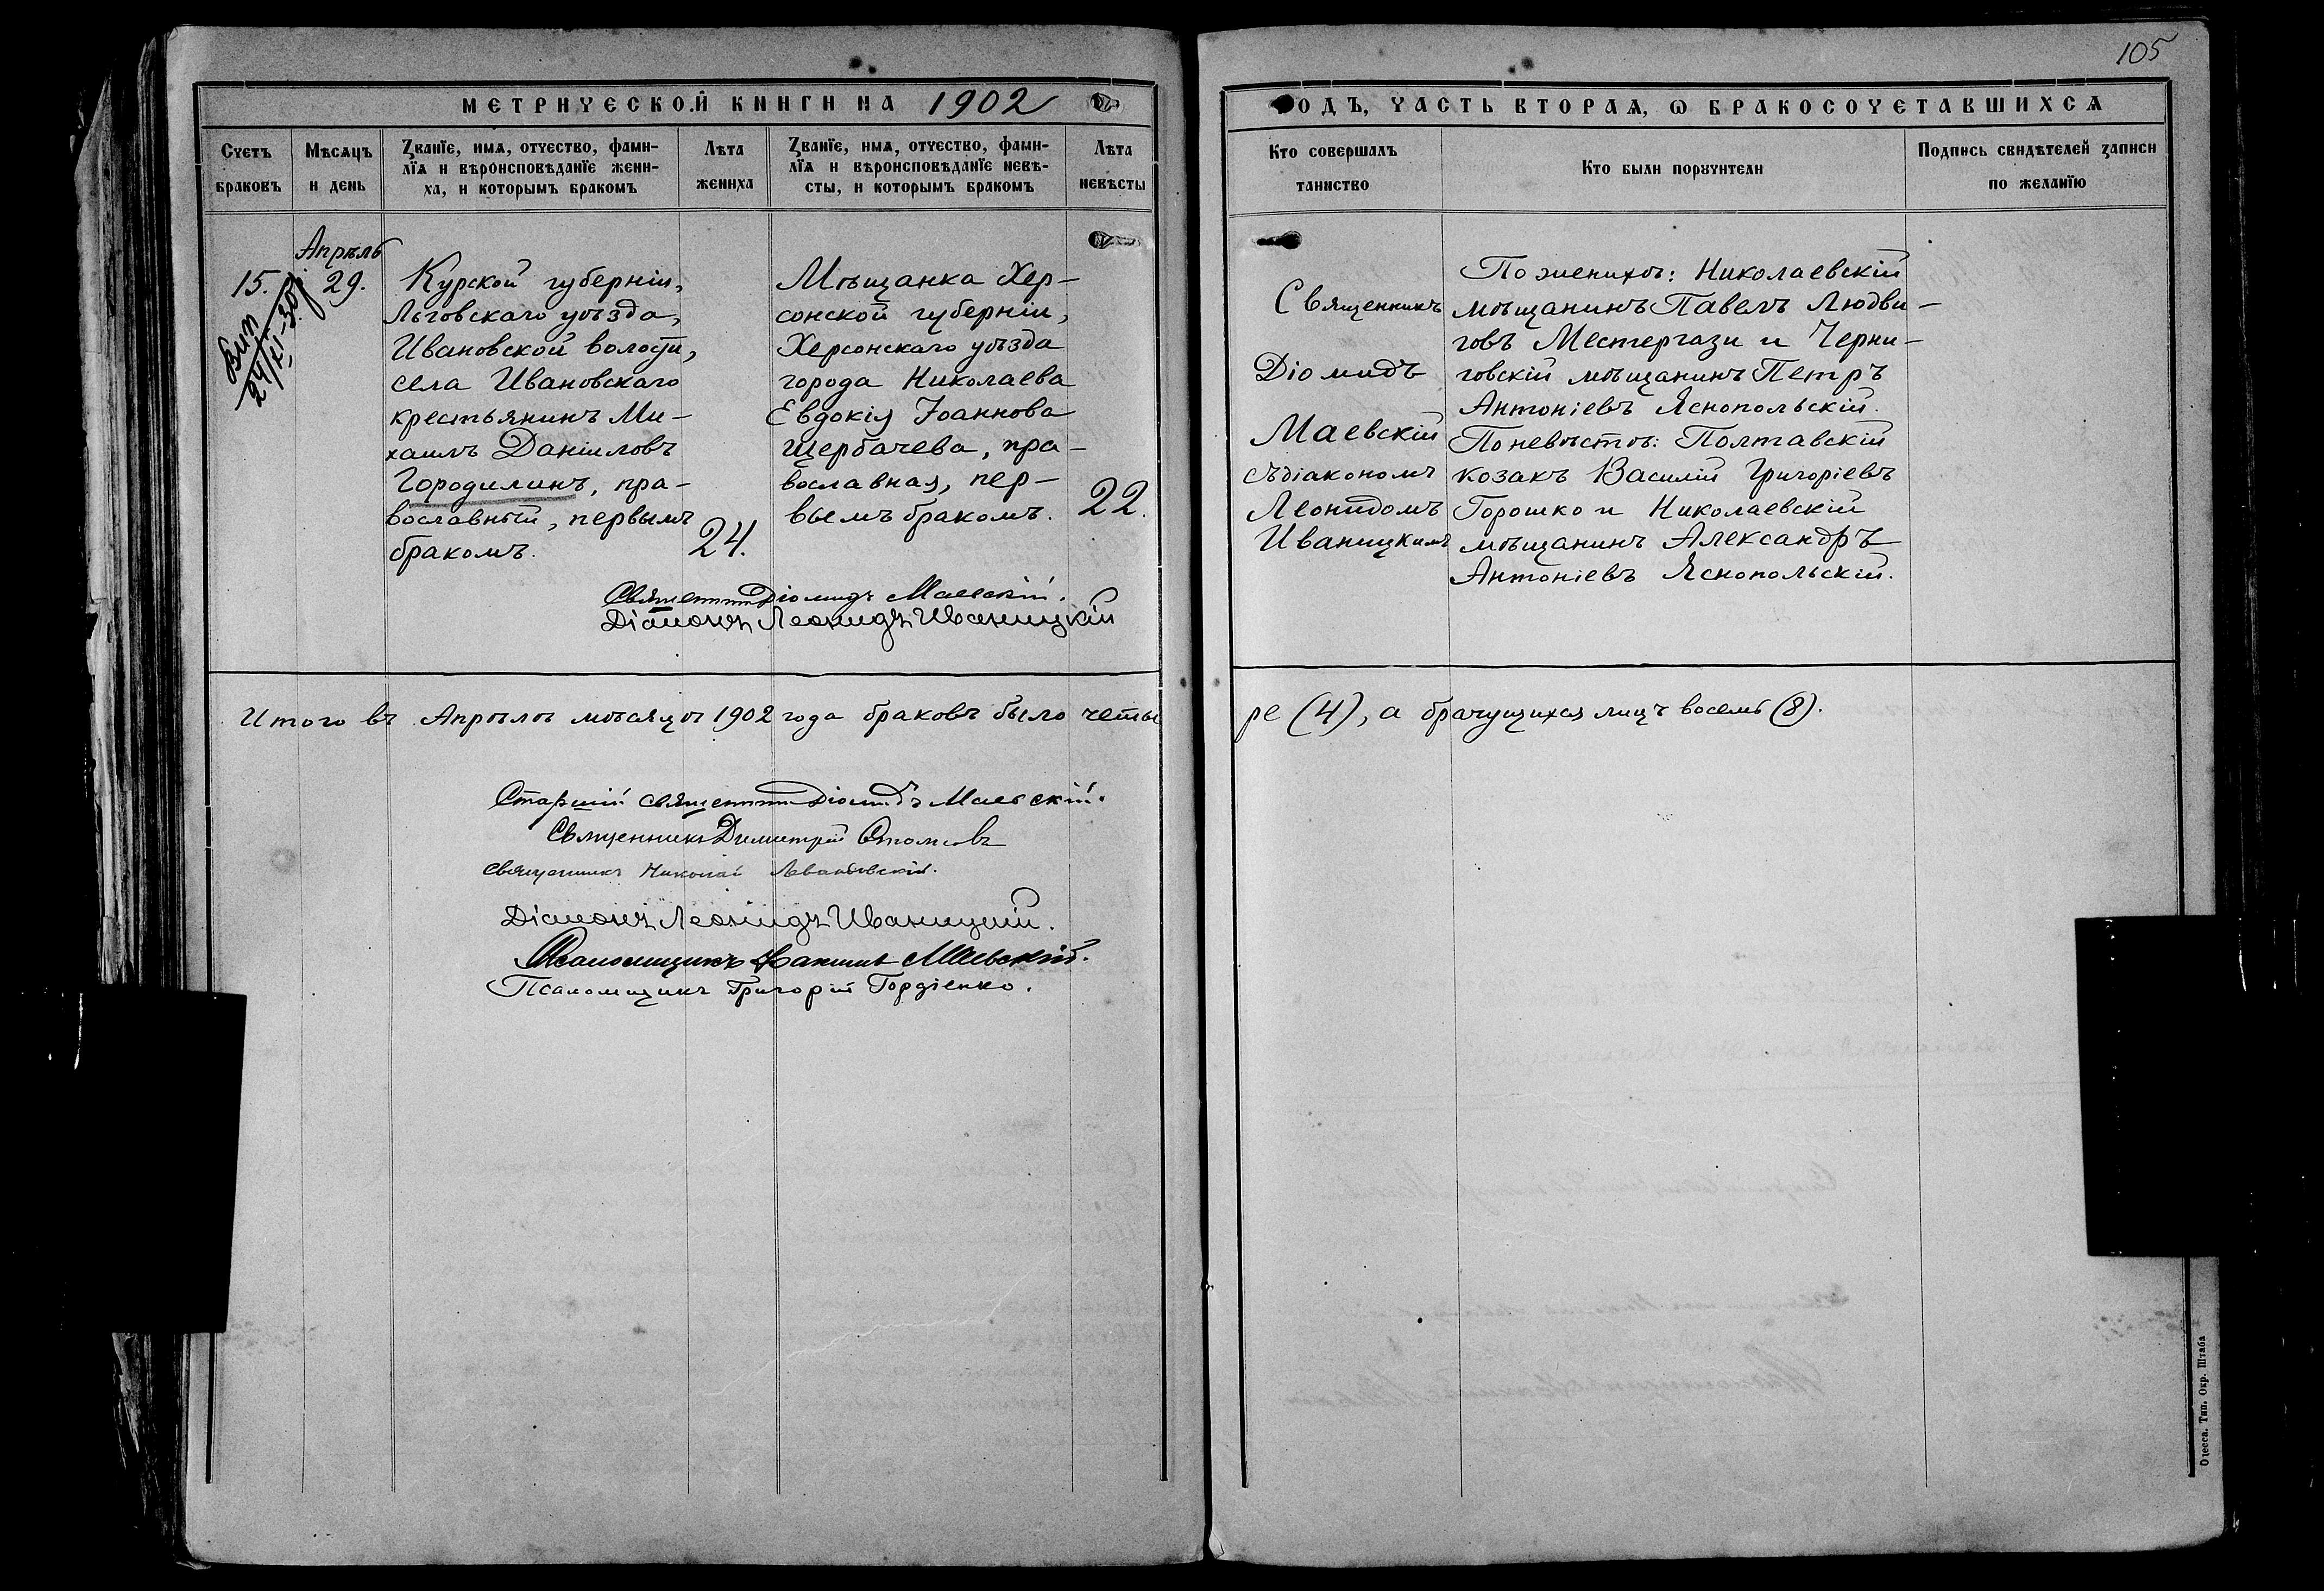 105
МЕТРИЧЕСКОЙ КНИГИ НА 1902
ОДЪ, ЧАСТЬ ВТОРАѦ, Ѡ БРАКОСОЧЕТАВШИХСѦ
Счетъ браковъ
Мѣсѧцъ и день
Званїе, имѧ, отчество, фами-
лїѧ и вѣроисповѣданїе жени-
ха, и которымъ бракомъ
Лѣта жениха
Званїе, имѧ, отчество, фами-
лїѧ и вѣроисповѣданїе невѣ-
сты, и которымъ бракомъ
Лѣта невѣсты
Кто совершалъ таинство
Кто были порꙋчители
Подпись свидѣтелей записи
по желанїю
15.
Вип
24/XI-30
Апрѣль
29.
Курской губерніи,
Льговскаго уѣзда,
Ивановской волости,
села Ивановскаго
крестьянинъ Ми-
хаилъ Даніиловъ
Городилинъ, пра-
вославный, первымъ
бракомъ.
24.
Мѣщанка Хер-
сонской губерніи,
Херсонскаго уѣзда
города Николаева
Евдокія Іоаннова
Щербачева, пра-
вославная, пер-
вымъ бракомъ.
22.
Священникъ
Діомидъ
Маевскій
съ діакономъ
Леонидомъ
Иваницкимъ
По женихѣ: Николаевскій
мѣщанинъ Павелъ Людви-
говъ Местергази и Черни-
говскій мѣщанинъ Петръ
Антоніевъ Яснопольскій.
По невѣстѣ: Полтавскій
козакъ Василій Григоріевъ
Горошко и Николаевскій
мѣщанинъ Александръ
Антоніевъ Яснопольскій.
Священникъ Діомидъ Маевскій.
Діаконъ Леонидъ Иваницкій
Итого въ Апрѣлѣ мѣсяцѣ 1902 года браковъ было четы
ре (4), а брачущихся лицъ восемь (8).
Старшій священникъ Діомидъ Маевскій.
Священникъ Димитрій
Священникъ Николай Левандовскій.
Діаконъ Леонидъ Иваницкій.
Псаломщикъ Маевскій.
Псаломщикъ Григорій Гордіенко.
Одесса. Тип. Окр. Штаба